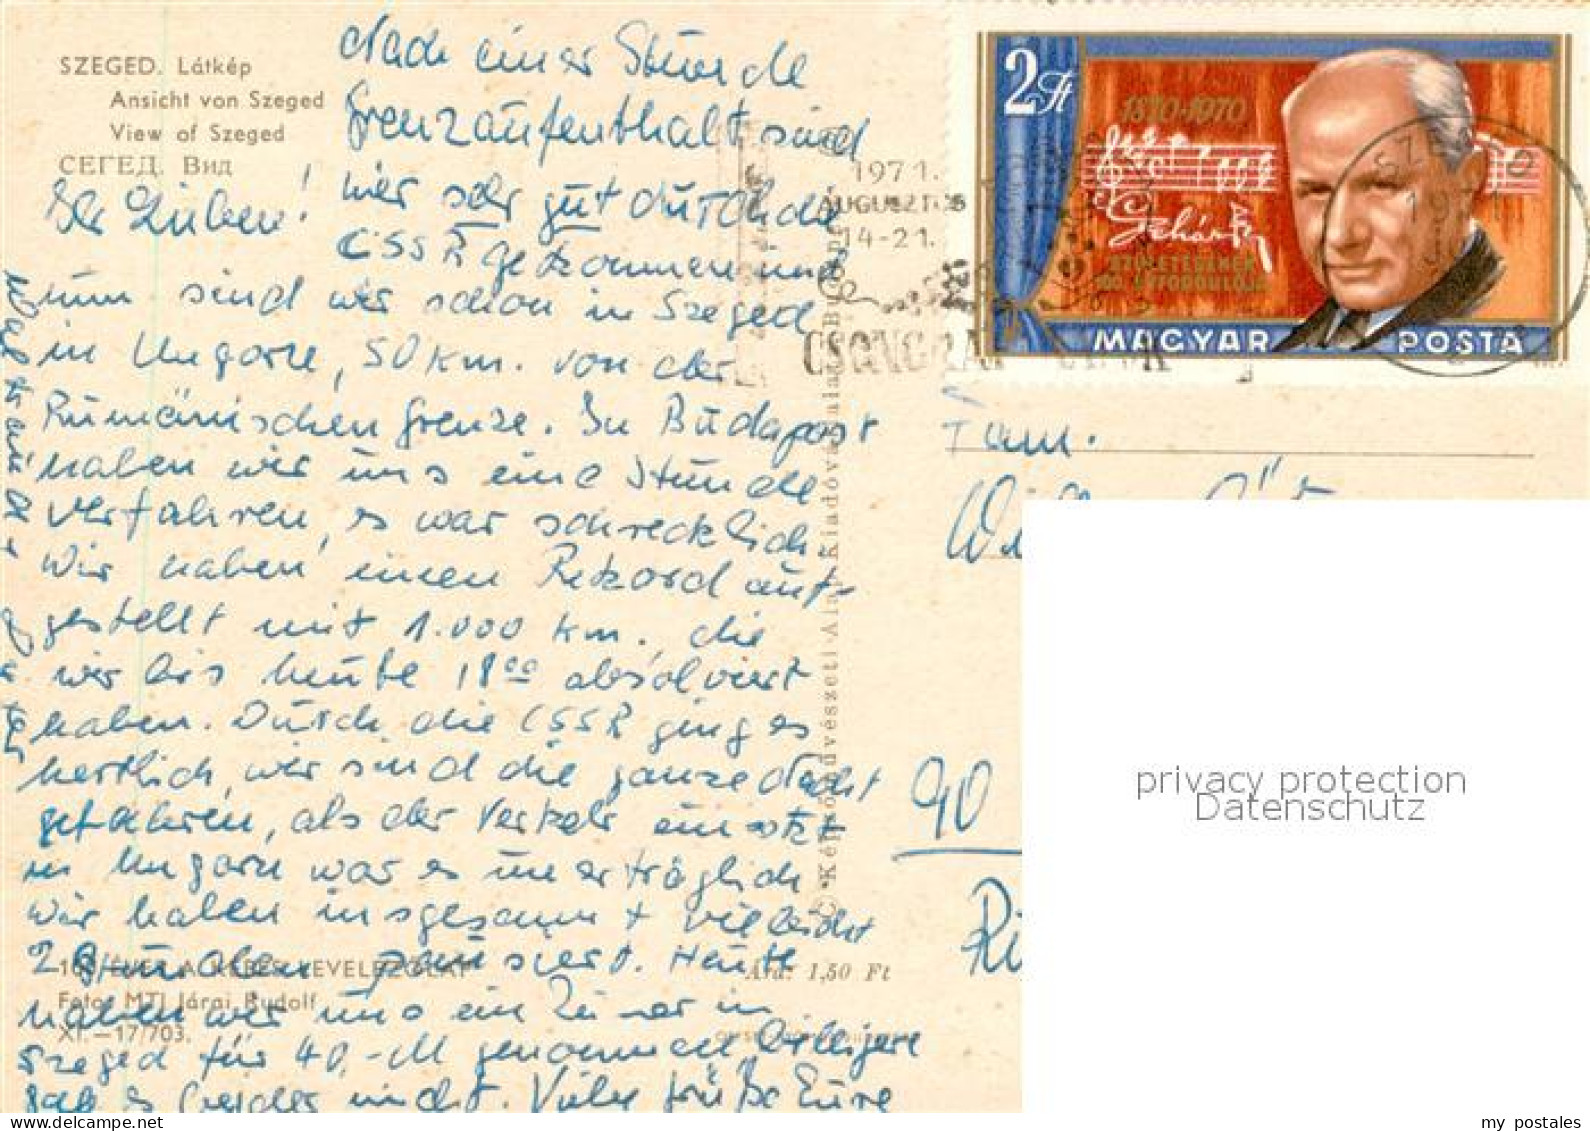 SZEGED. Látkép
Ansicht von Szeged
View of Szeged
СЕГЕД. Вид
Ihr Lieben!
Nach einer Stunde
Grenzaufenthalt sind
wir sehr gut durch die
CSSR gekommen und
nun sind wir schon in Szeged
in Ungarn, 50 km. von der
Rumänischen Grenze. In Budapest
haben wir uns eine Stunde
verfahren, es war schrecklich
Wir haben einen Rekord auf-
gestellt mit 1.000 km, die
wir bis heute 18ºº absolviert
haben. Durch die CSSR ging es
herrlich, wir sind die ganze Nacht
gefahren, als der Verkehr einsetzt
in Ungarn war es unerträglich
Wir haben insgesamt vielleicht
2 Stunden pausiert. Heute
haben wir uns ein Zimmer in
Szeged für 40,-M genommen, billigere
gab es leider nicht. Viele Grüße Eure
100 ÉVES A KÉPES LEVELEZŐLAP
Foto: MTI Járai Rudolf
XI.—17/703.
Ára: 1,50 Ft
© Képzőművészeti Alap Kiadóvállalata, Budapest
1971.
AUGUSZTUS
14-21.
CSONGRÁD
2 Ft
1870-1970
Lehár F
SZÜLETÉSÉNEK
100. ÉVFORDULÓJA
MAGYAR POSTA
SZEGED
Fam.
90
privacy protection
Datenschutz
my postales